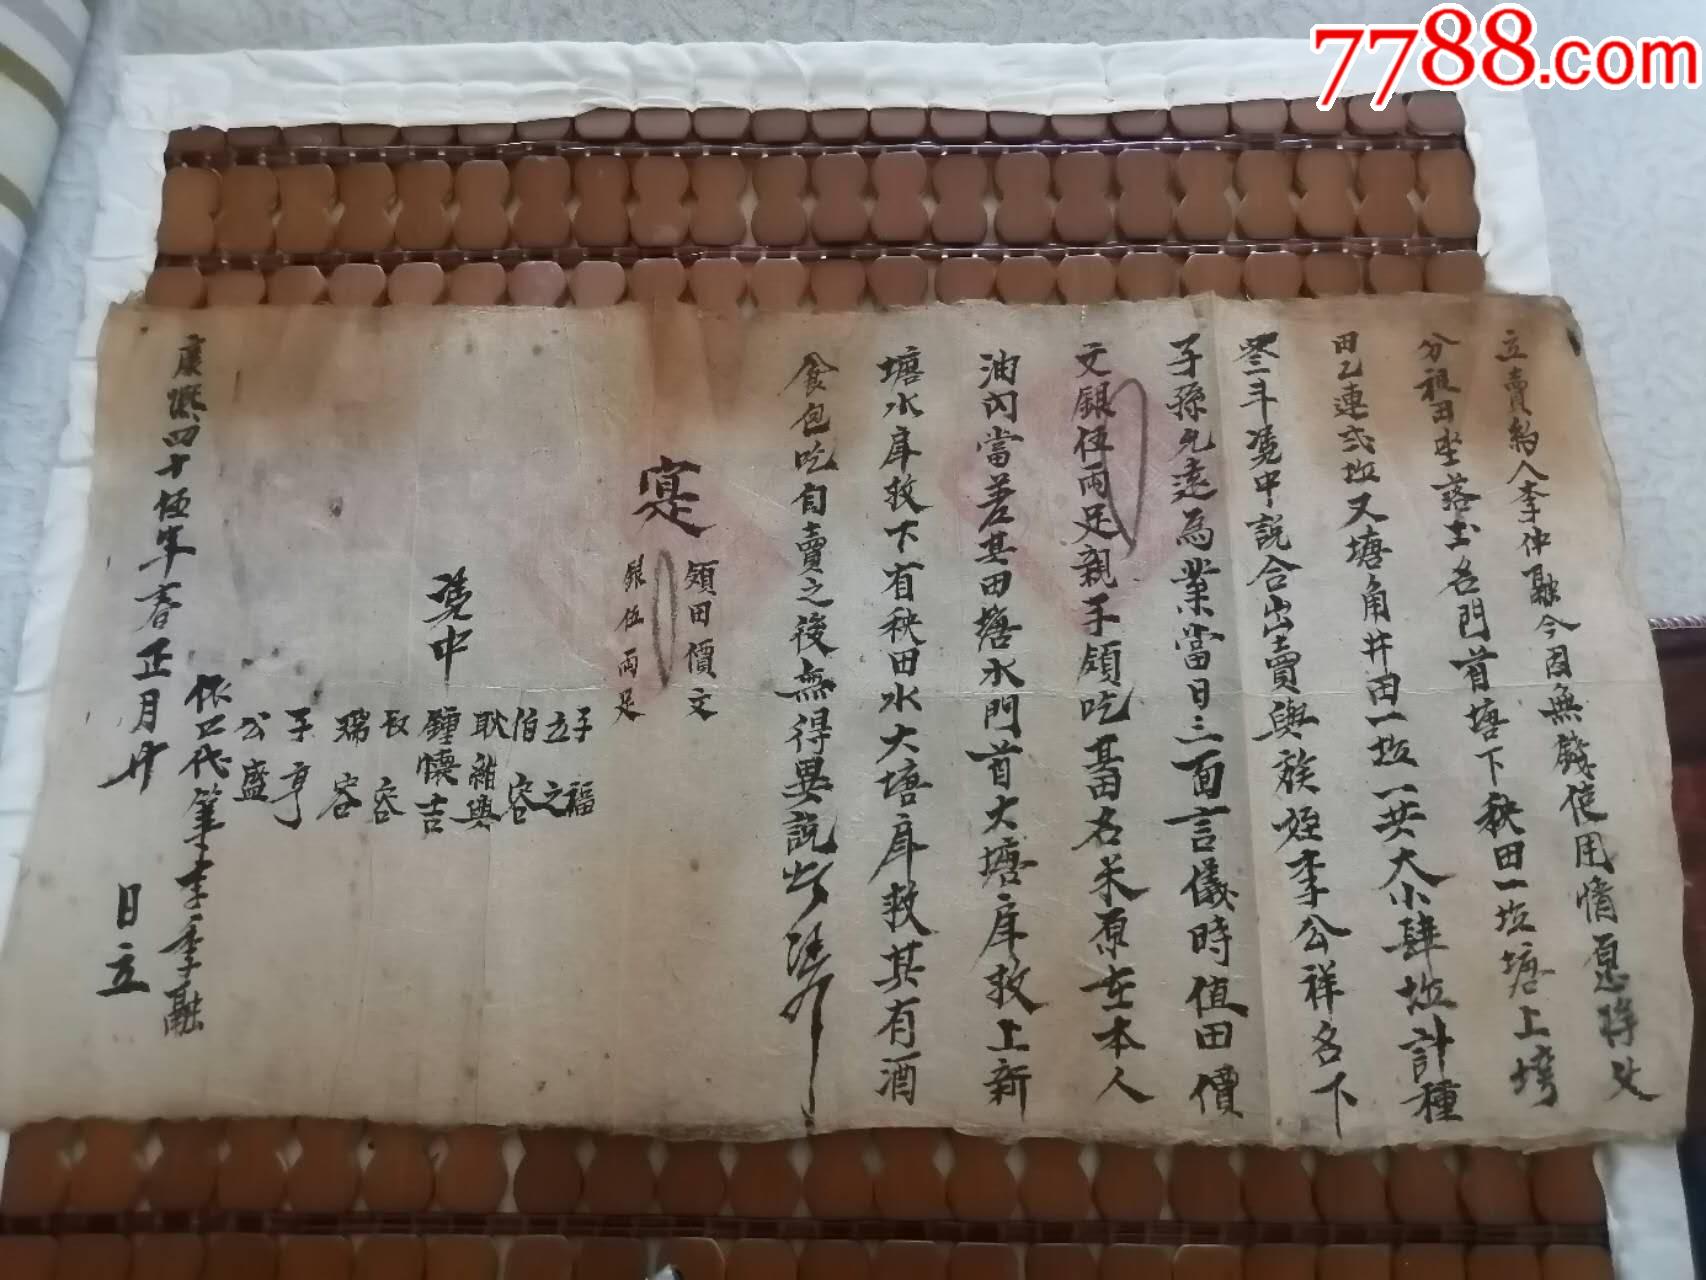 7788.com
立賣約人李仲融今因無錢使用情愿將父
分祖田坐落土名門首塘下秧田一坵塘上塆
田乙連弍坵又塘角井田一坵一共大小肆坵計種
叁斗凴中說合出賣與族姪李公祥名下
子孫允遠為業當日三面言儀時值田價
文銀伍兩足親手領吃其田名米原在本人
油內當差其田塘水門首大塘庠救上新
塘水庠救下有秧田水大塘庠救其有酒
食包吃自賣之後無得異說此凴
寔
領田價文
銀伍兩足
凴中
子福
立之
伯容
耿維興
鍾懷吉
長容
瑞容
子亨
公盛
依口代筆李季融
康熙四十伍年春正月廿
日立